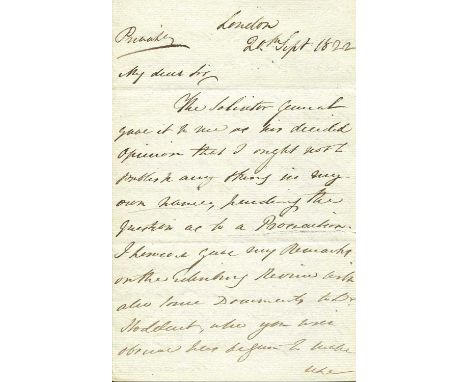 London
Private
Sept 1822
My dear Sir
The Solicitor General
gave it to me as his decided
opinion that I ought not to
publish any thing in my
own name, pending the
Question as to a Prosecution.
I however gave my Remarks
on the Edinburg Review with
also some Documents to Dr
Stoddart, who you will
observe has begun to make
use